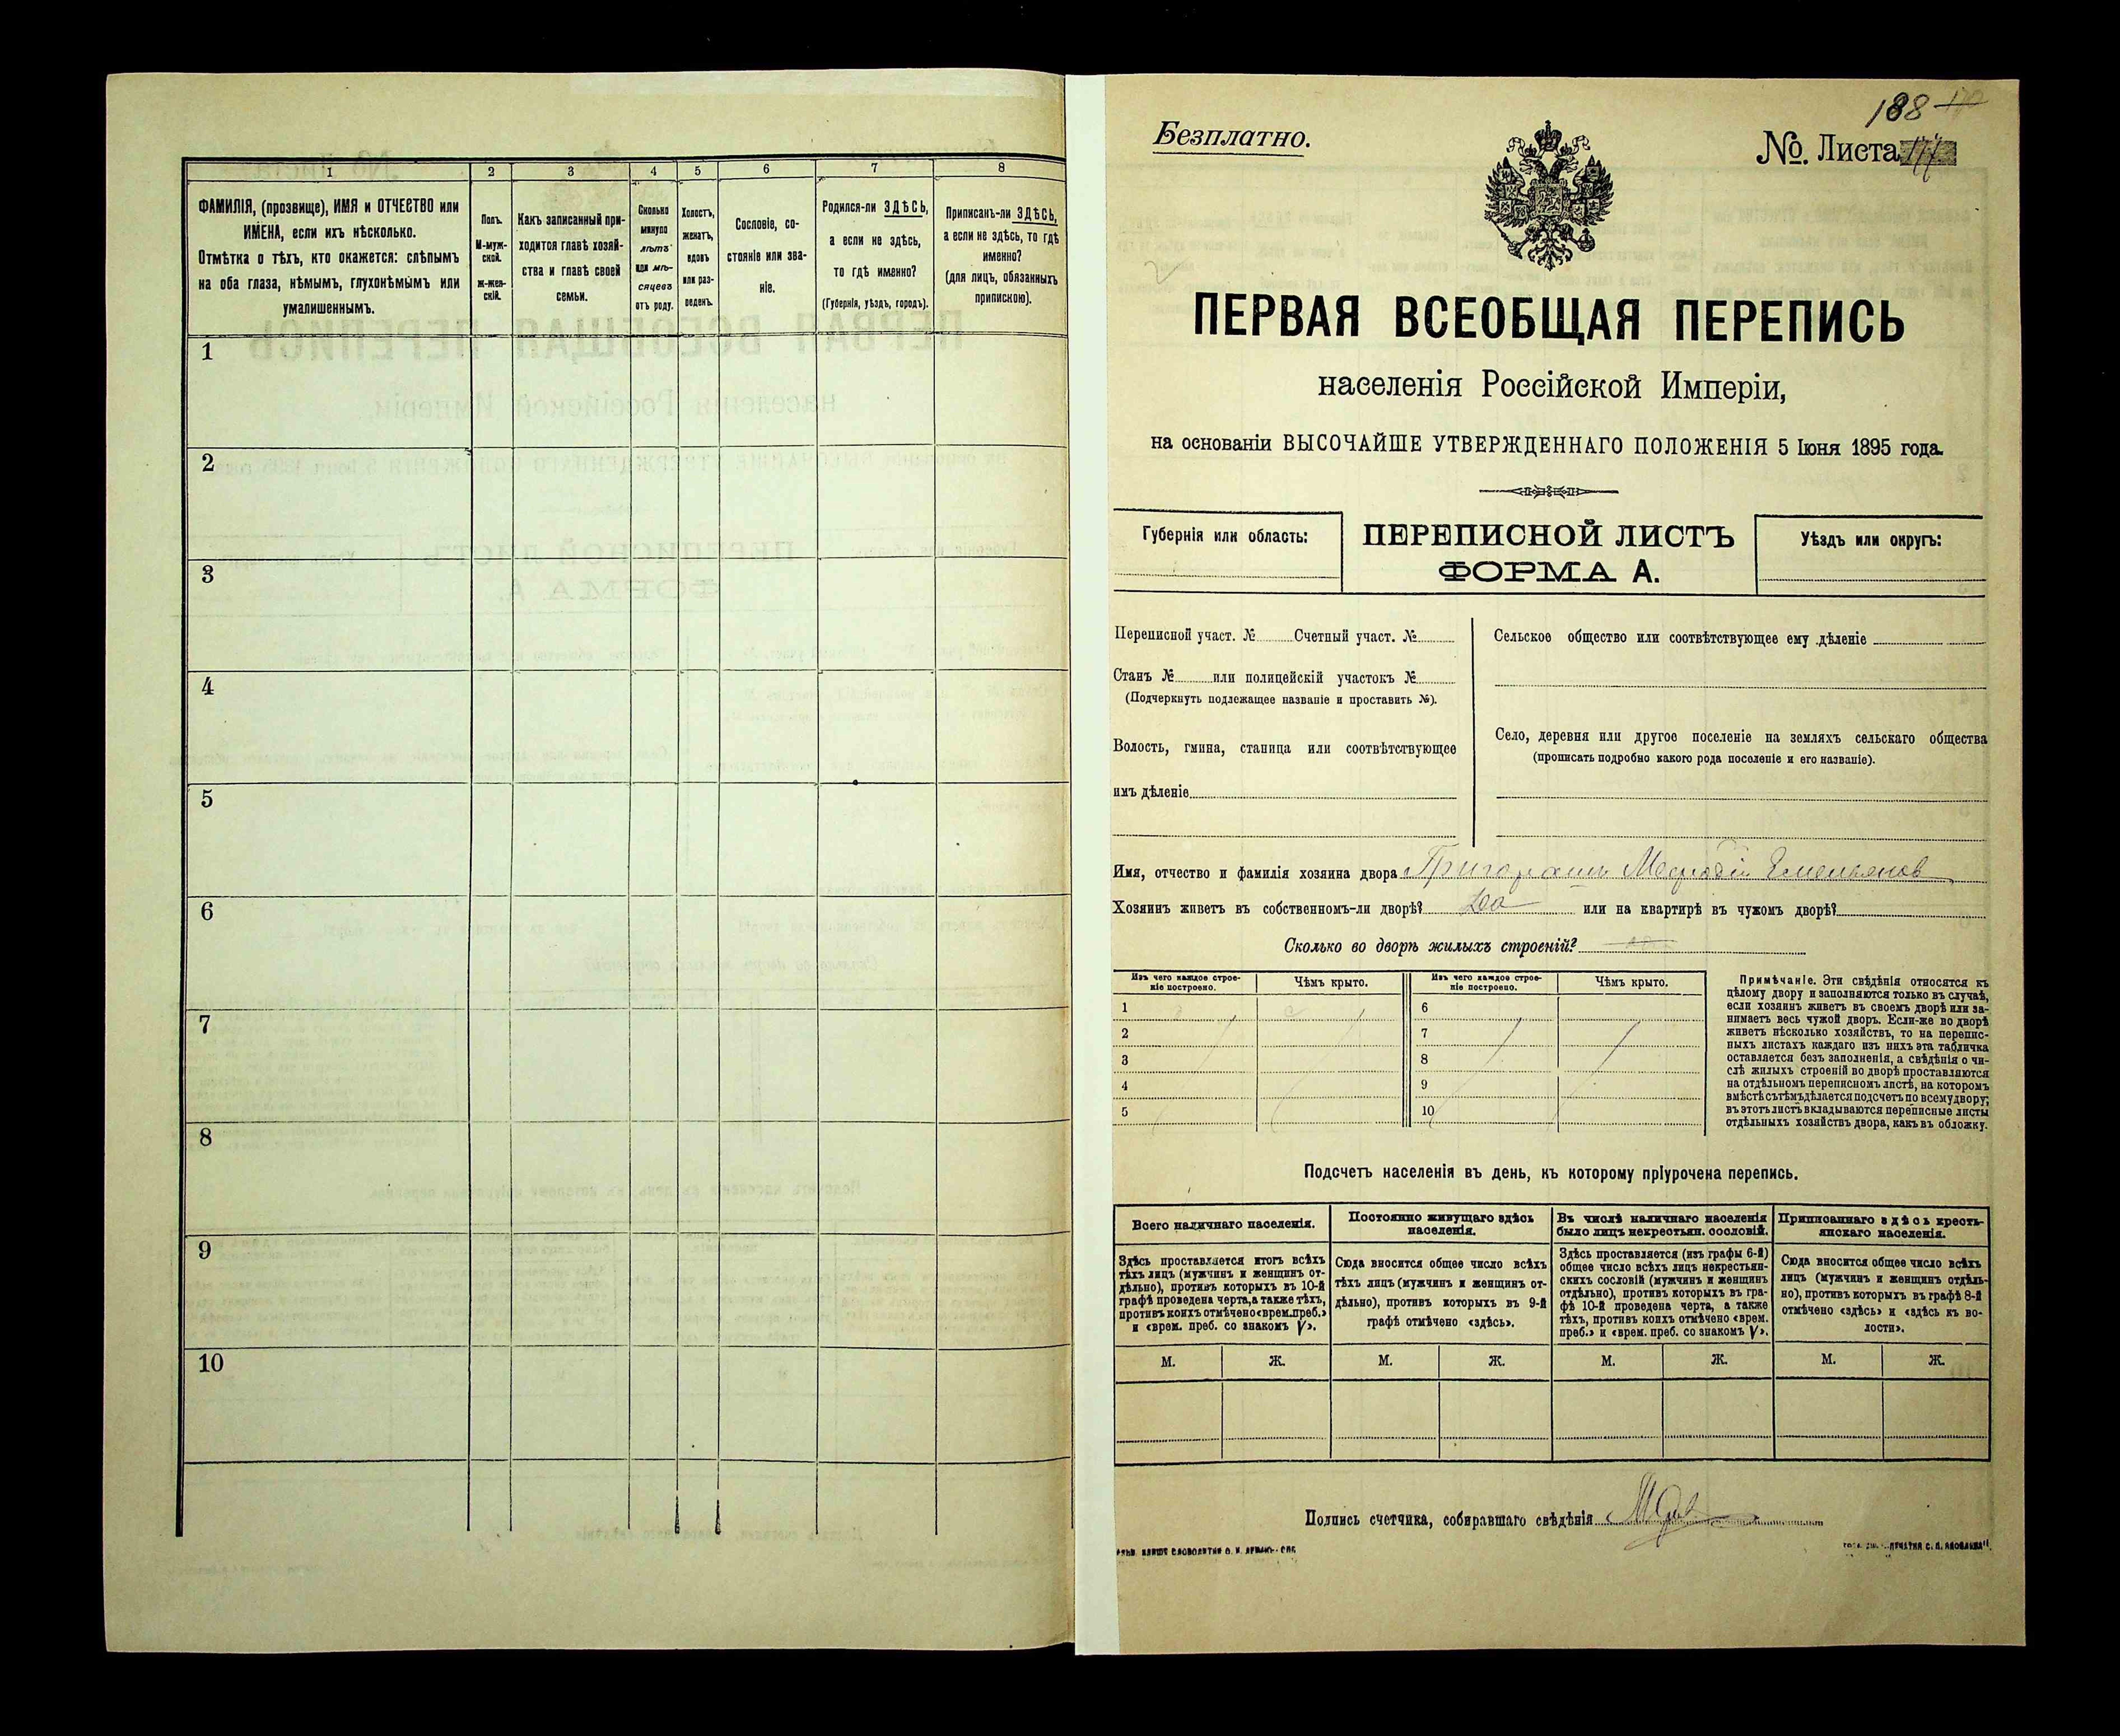 1 2 3 4 5 6 7 8
ФАМИЛІЯ, (прозвище), ИМЯ и ОТЧЕСТВО или
ИМЕНА, если ихъ нѣсколько.
Отмѣтка о тѣхъ, кто окажется: слѣпымъ
на оба глаза, нѣмымъ, глухонѣмымъ или
умалишеннымъ.
Полъ.
М-муж-
ской.
ж-жен-
скій.
Какъ записанный при-
ходится главѣ хозяй-
ства и главѣ своей
семьи.
Сколько
минуло
лѣтъ
или мѣ-
сяцевъ
отъ роду.
Холостъ,
женатъ,
вдовъ
или раз-
веденъ.
Сословіе, со-
стояніе или зва-
ніе.
Родился-ли ЗДѢСЬ,
а если не здѣсь,
то гдѣ именно?
(Губернія, уѣздъ, городъ).
Приписанъ-ли ЗДѢСЬ,
а если не здѣсь, то гдѣ
именно?
(для лицъ, обязанныхъ
припискою).
1
2
3
4
5
6
7
8
9
10
188
Безплатно.
№. Листа
ПЕРВАЯ ВСЕОБЩАЯ ПЕРЕПИСЬ
населенія Россійской Имперіи,
на основаніи ВЫСОЧАЙШЕ УТВЕРЖДЕННАГО ПОЛОЖЕНІЯ 5 Іюня 1895 года.
Губернія или область:
ПЕРЕПИСНОЙ ЛИСТЪ
ФОРМА А.
Уѣздъ или округъ:
Переписной участ. № Счетный участ. №
Станъ № или полицейскій участокъ №
(Подчеркнуть подлежащее названіе и проставить №).
Волость, гмина, станица или соотвѣтствующее
имъ дѣленіе
Сельское общество или соотвѣтствующее ему дѣленіе
Село, деревня или другое поселеніе на земляхъ сельскаго общества
(прописать подробно какого рода поселеніе и его названіе).
Имя, отчество и фамилія хозяина двора
Хозяинъ живетъ въ собственномъ-ли дворѣ? Да или на квартирѣ въ чужомъ дворѣ?
Сколько во дворѣ жилыхъ строеній?
Изъ чего каждое строе-
ніе построено.
Чѣмъ крыто.
Изъ чего каждое строе-
ніе построено.
Чѣмъ крыто.
1 6
2 7
3 8
4 9
5 10
Примѣчаніе. Эти свѣдѣнія относятся къ
цѣлому двору и заполняются только въ случаѣ,
если хозяинъ живетъ въ своемъ дворѣ или за-
нимаетъ весь чужой дворъ. Если-же во дворѣ
живетъ нѣсколько хозяйствъ, то на перепис-
ныхъ листахъ каждаго изъ нихъ эта табличка
оставляется безъ заполненія, а свѣдѣнія о чи-
слѣ жилыхъ строеній во дворѣ проставляются
на отдѣльномъ переписномъ листѣ, на которомъ
вмѣстѣ съ тѣмъ дѣлается подсчетъ по всему двору;
въ этотъ листъ вкладываются переписные листы
отдѣльныхъ хозяйствъ двора, какъ въ обложку.
Подсчетъ населенія въ день, къ которому пріурочена перепись.
Всего наличнаго населенія.
Здѣсь проставляется итогъ всѣхъ
тѣхъ лицъ (мужчинъ и женщинъ от-
дѣльно), противъ которыхъ въ 10-й
графѣ проведена черта, а также тѣхъ,
противъ коихъ отмѣчено «врем. преб.»
и «врем. преб. со знакомъ V».
Постоянно живущаго здѣсь
населенія.
Сюда вносится общее число всѣхъ
тѣхъ лицъ (мужчинъ и женщинъ от-
дѣльно), противъ которыхъ въ 9-й
графѣ отмѣчено «здѣсь».
Въ числѣ наличнаго населенія
было лицъ некрестьян. сословій.
Здѣсь проставляется (изъ графы 6-й)
общее число всѣхъ лицъ некрестьян-
скихъ сословій (мужчинъ и женщинъ
отдѣльно), противъ которыхъ въ гра-
фѣ 10-й проведена черта, а также
тѣхъ, противъ коихъ отмѣчено «врем.
преб.» и «врем. преб. со знакомъ V».
Приписаннаго здѣсь кресть-
янскаго населенія.
Сюда вносится общее число всѣхъ
лицъ (мужчинъ и женщинъ отдѣль-
но), противъ которыхъ въ графѣ 8-й
отмѣчено «здѣсь» и «здѣсь къ во-
лости».
М. Ж. М. Ж. М. Ж. М. Ж.
Подпись счетчика, собиравшаго свѣдѣнія